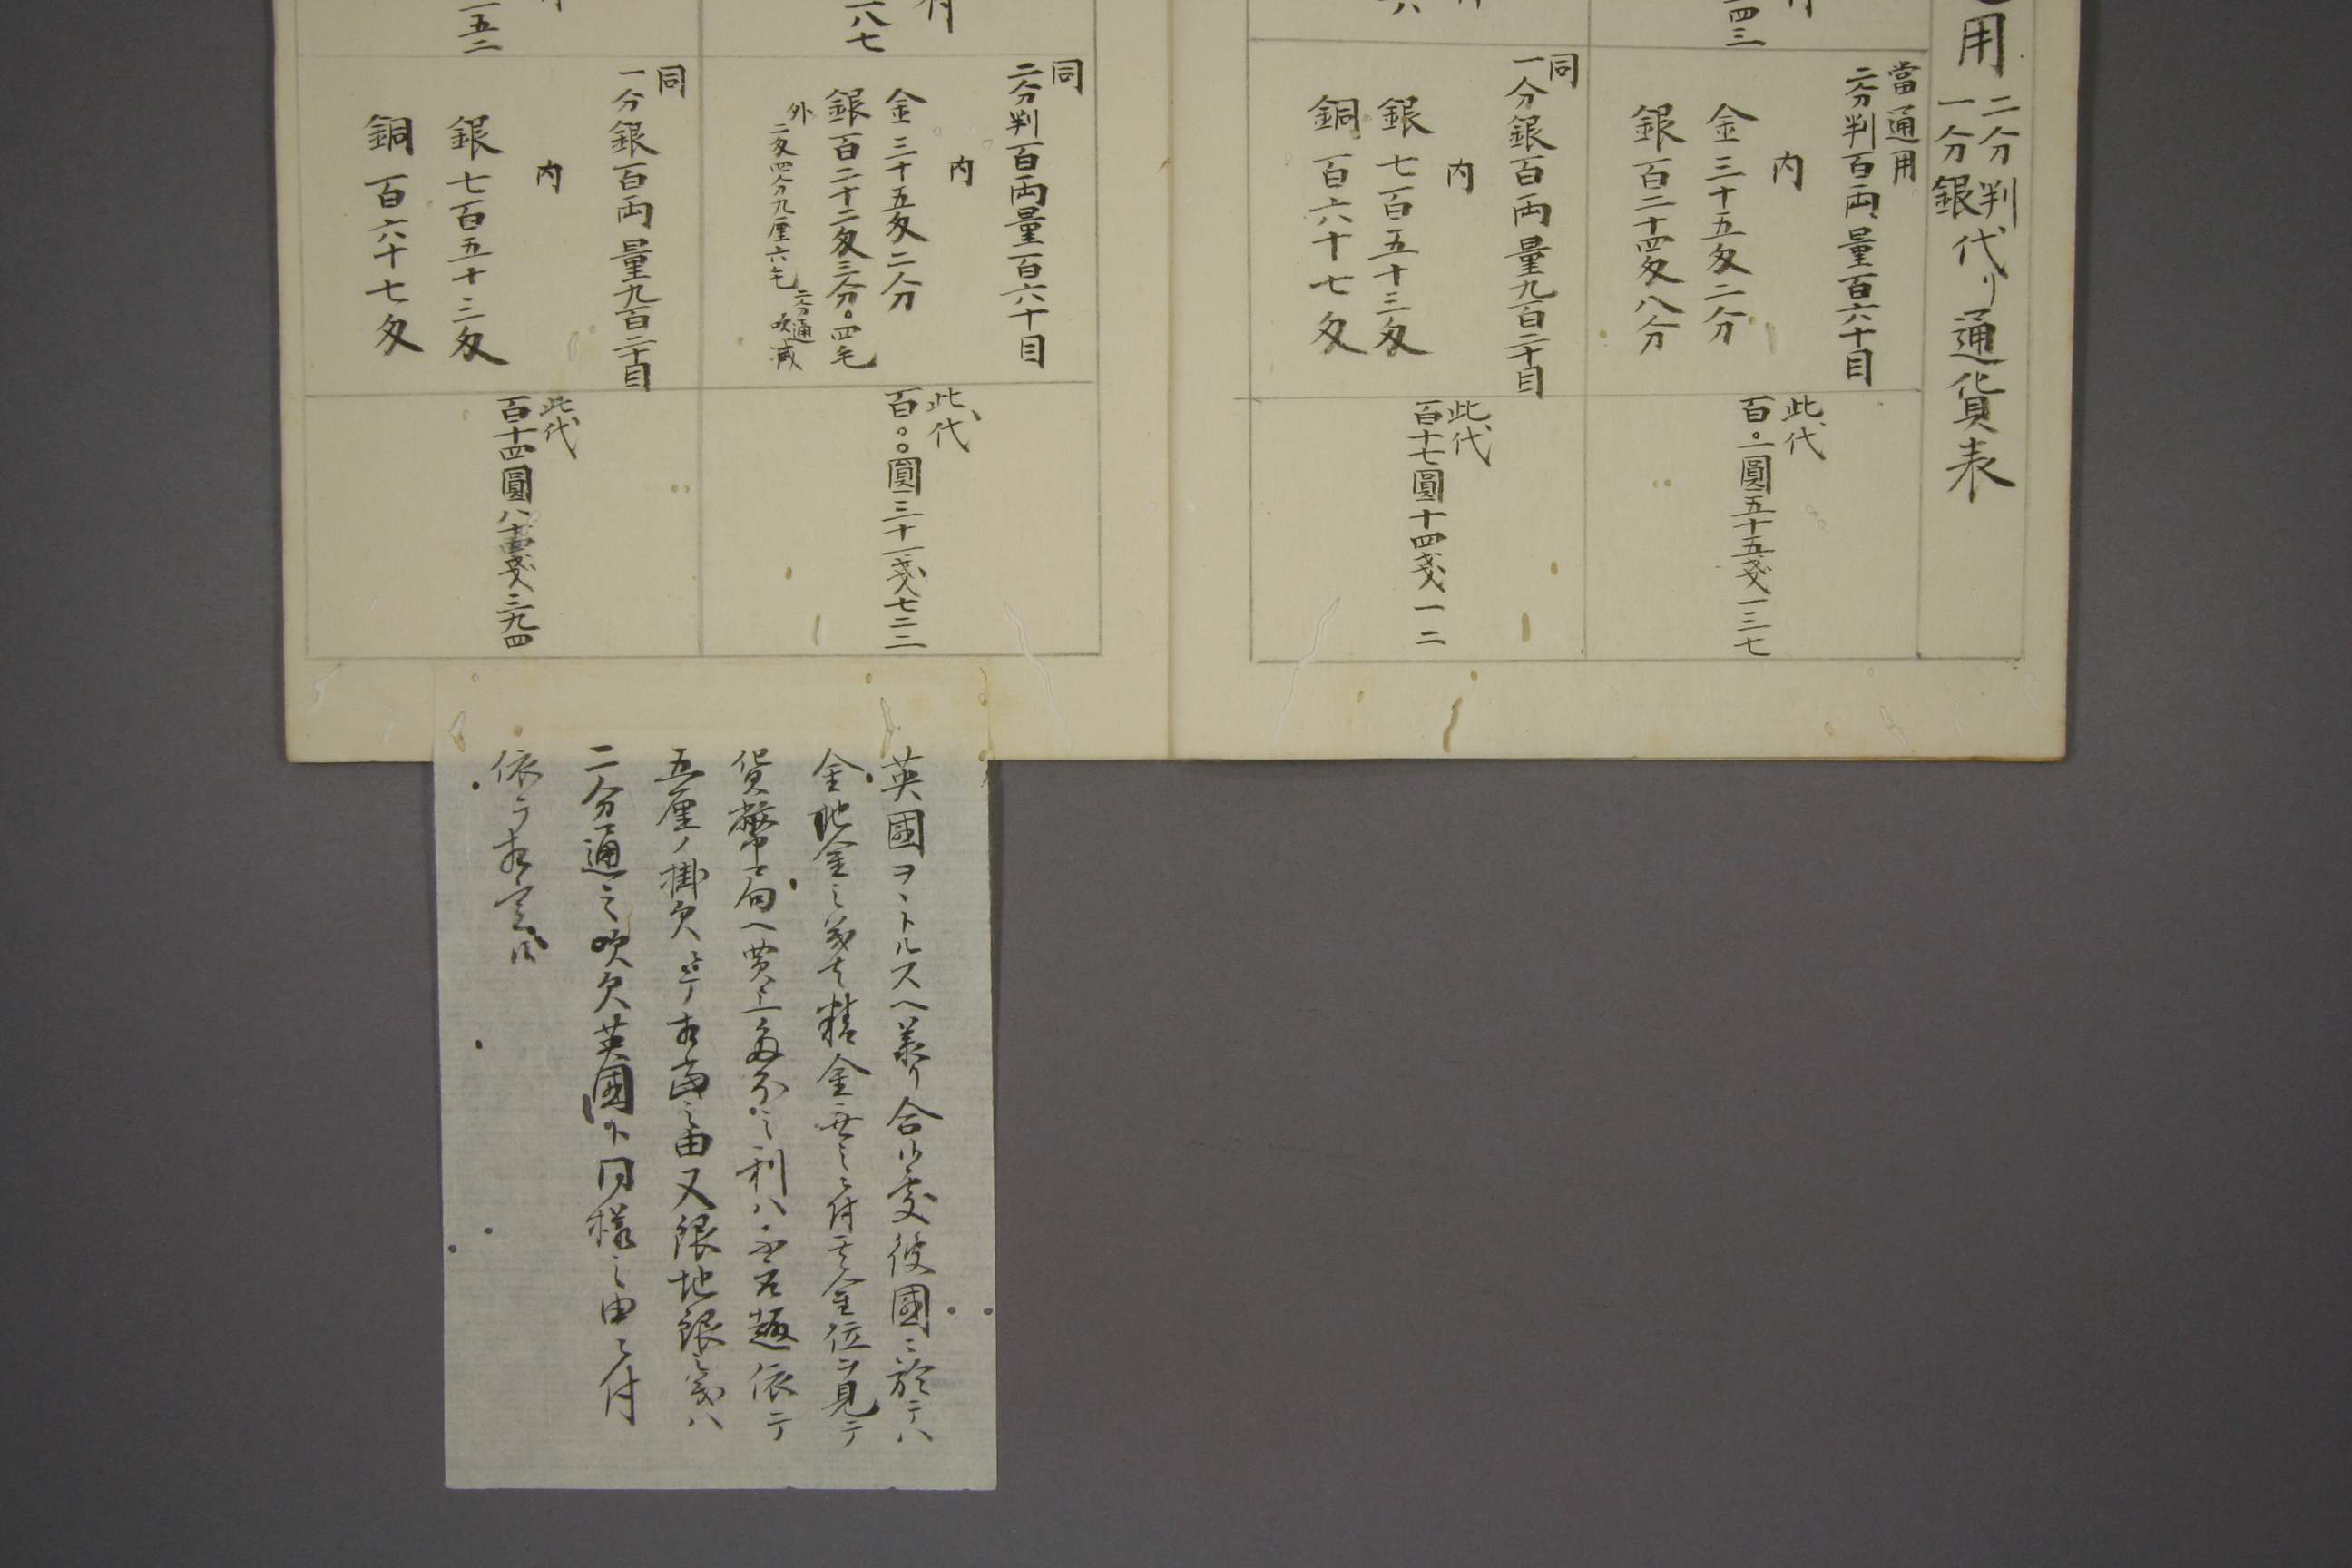 用
二分判
一分銀
代り通貨表
當通用
二分判百両量百六十目
内
金三十五匁二分
銀百二十四匁八分
此代
百〇一圓五十五戔一三七
同
一分銀百両量九百二十目
内
銀七百五十三匁
銅百六十七匁
此代
百十七圓十四戔一二
同
二分判百両量百六十目
内
金三十五匁二分
銀百二十二匁三分〇四毛
外
二匁四分九厘六毛
二分通
吹減
此代
百〇〇圓三十一戔七二二
同
一分銀百両量九百二十目
内
銀七百五十三匁
銅百六十七匁
此代
百十四圓八十戔三九四
英國ヲヽトルスヘ義リ合候處彼國ニ於テハ
金地金之義者精金無之ニ付其金位ヲ見テ
貨幣局ヘ買上多分之利ハ不否趣依テ
五厘ノ掛欠ニテ相当之由又銀地銀之義ハ
二分通之吹欠英國ト同様之由ニ付
依テ相定候